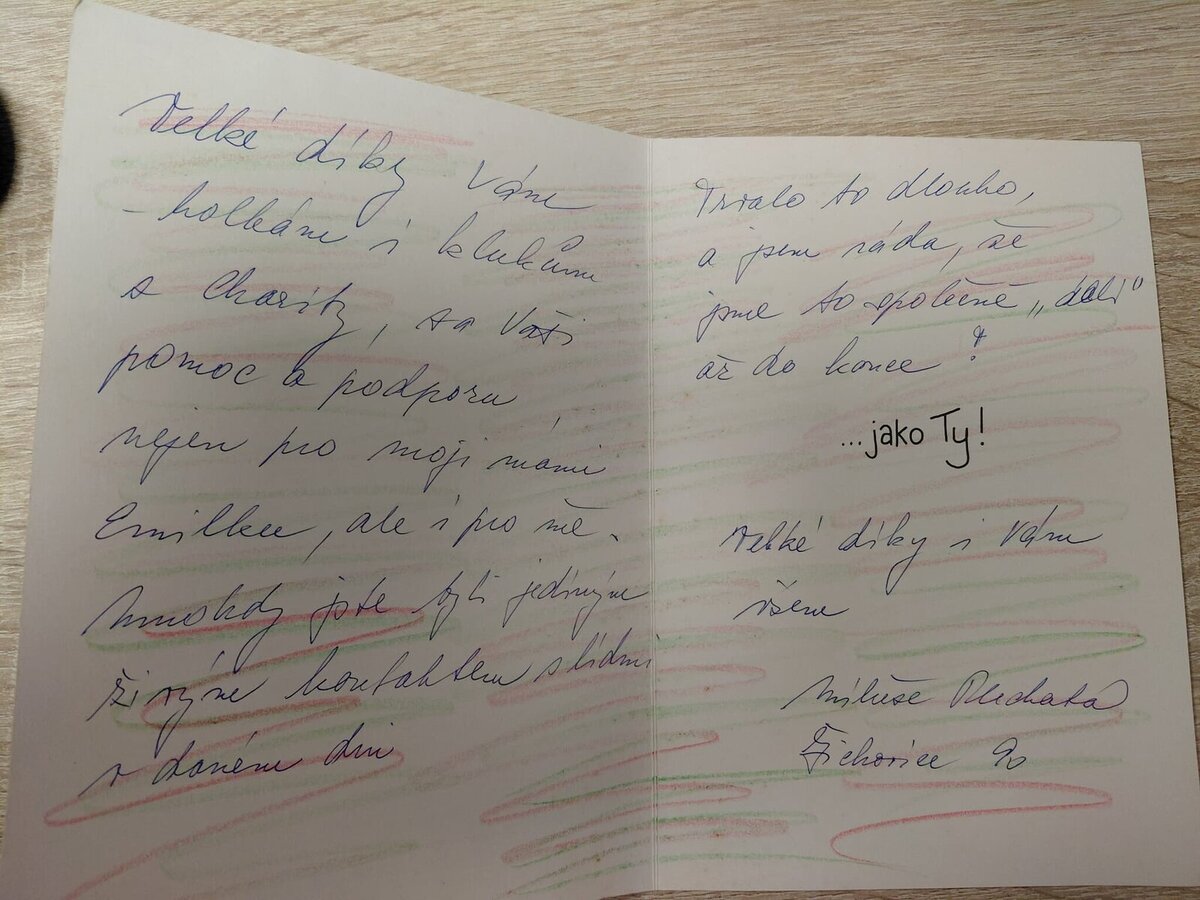 Velké díky Vám
- holkám i klukům
z Charity, za Vaši
pomoc a podporu
nejen pro moji mámu
Emilku, ale i pro mě.
Mnohdy jste byli jediným
živým kontaktem s lidmi
v daném dni
Trvalo to dlouho,
a jsem ráda, že
jsme to společně „dali"
až do konce!
...jako Ty!
Velké díky i Vám
všem
Miluše
Žichovice 90